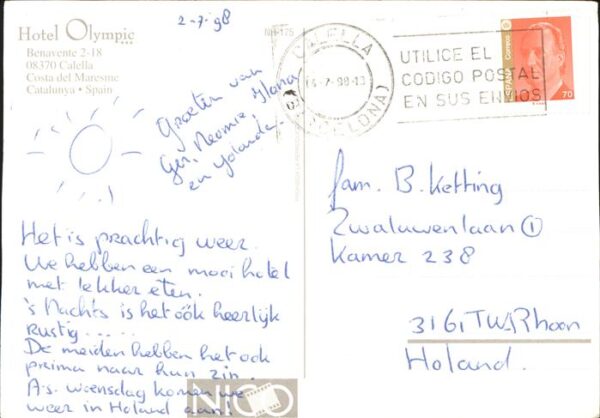 2-7-'98
Hotel Olympic
Benavente 2-18
08370 Calella
Costa del Maresme
Catalunya • Spain
NH-175
Groeten van
Ger, Neomie, Ilona
en Yolanda.
Het is prachtig weer.
We hebben een mooi hotel
met lekker eten.
's Nachts is het óók heerlijk
rustig.....
De meiden hebben het ook
prima naar hun zin.
A.s. woensdag komen we
weer in Holand aan!
NICO
CALELLA
-7-98-13
(BARCELONA)
UTILICE EL
CODIGO POSTAL
EN SUS ENVIOS
ESPAÑA Correos
70
fam. B. Ketting
Zwaluwenlaan 1
Kamer 238
3161 TW. Rhoon
Holand.